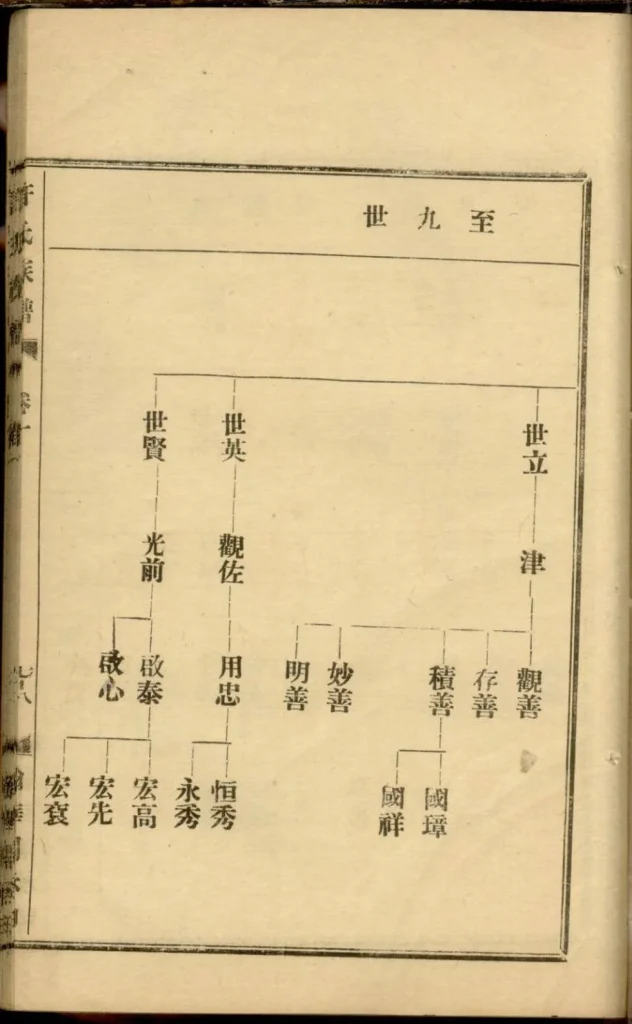 至九世
世立
世英
世賢
津
觀佐
光前
觀善
存善
積善
妙善
明善
用忠
啟泰
啟心
國璋
國祥
恒秀
永秀
宏高
宏先
宏袞
許氏族譜
卷十